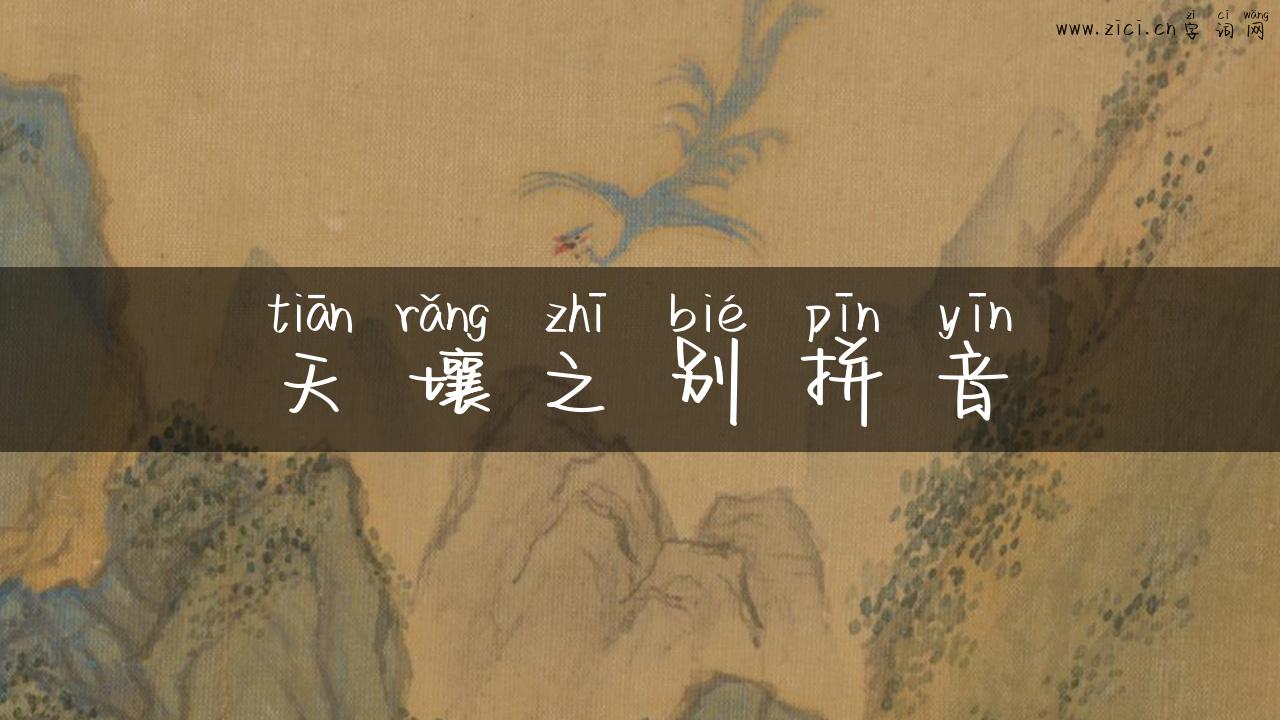 zì cí wǎng
www.zici.cn 字词网
tiān rǎng zhī bié pīn yīn
天壤之别拼音